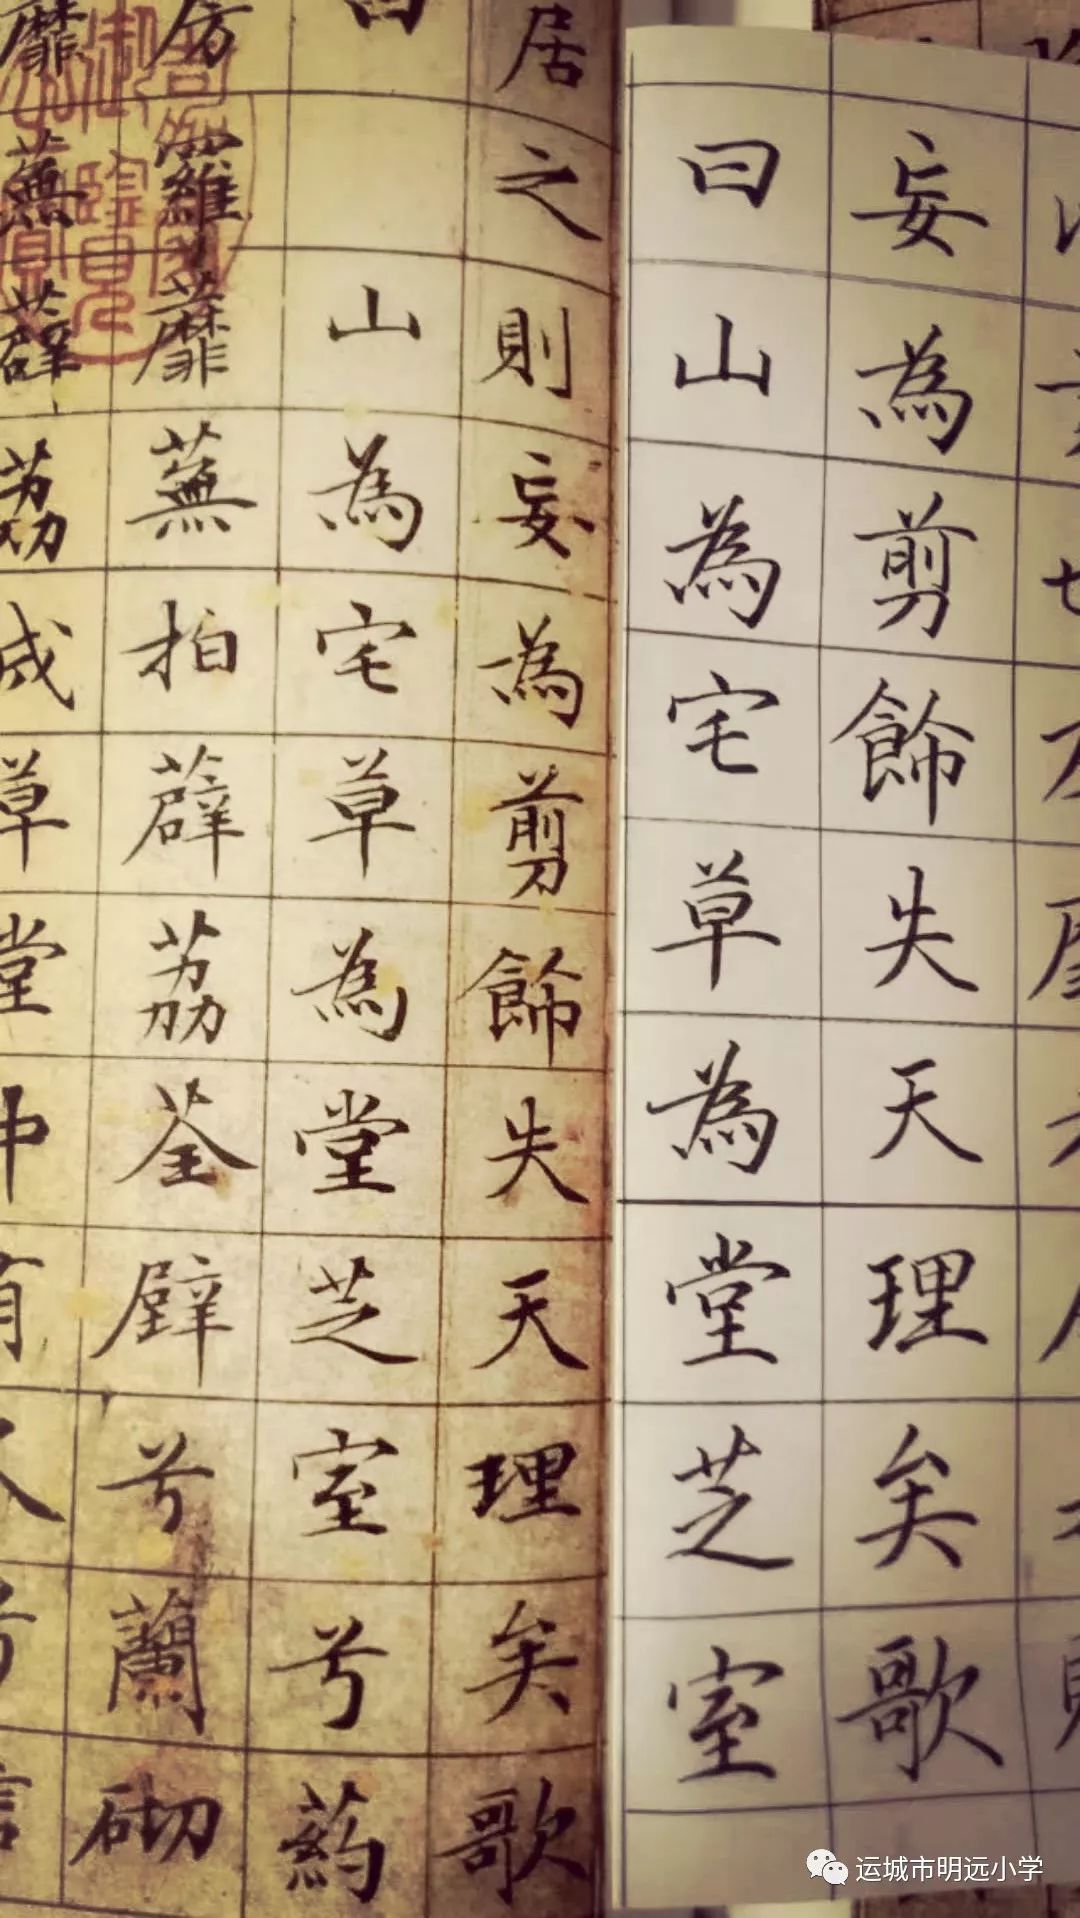 妄為剪飾失天理矣歌
曰山為宅草為堂芝室
居之則妄為剪飾失天理矣歌
曰山為宅草為堂芝室兮葯
房羅蘼蕪拍薜荔荃壁兮蘭砌
蘼蕪薜荔成草堂中有人兮信
运城市明远小学